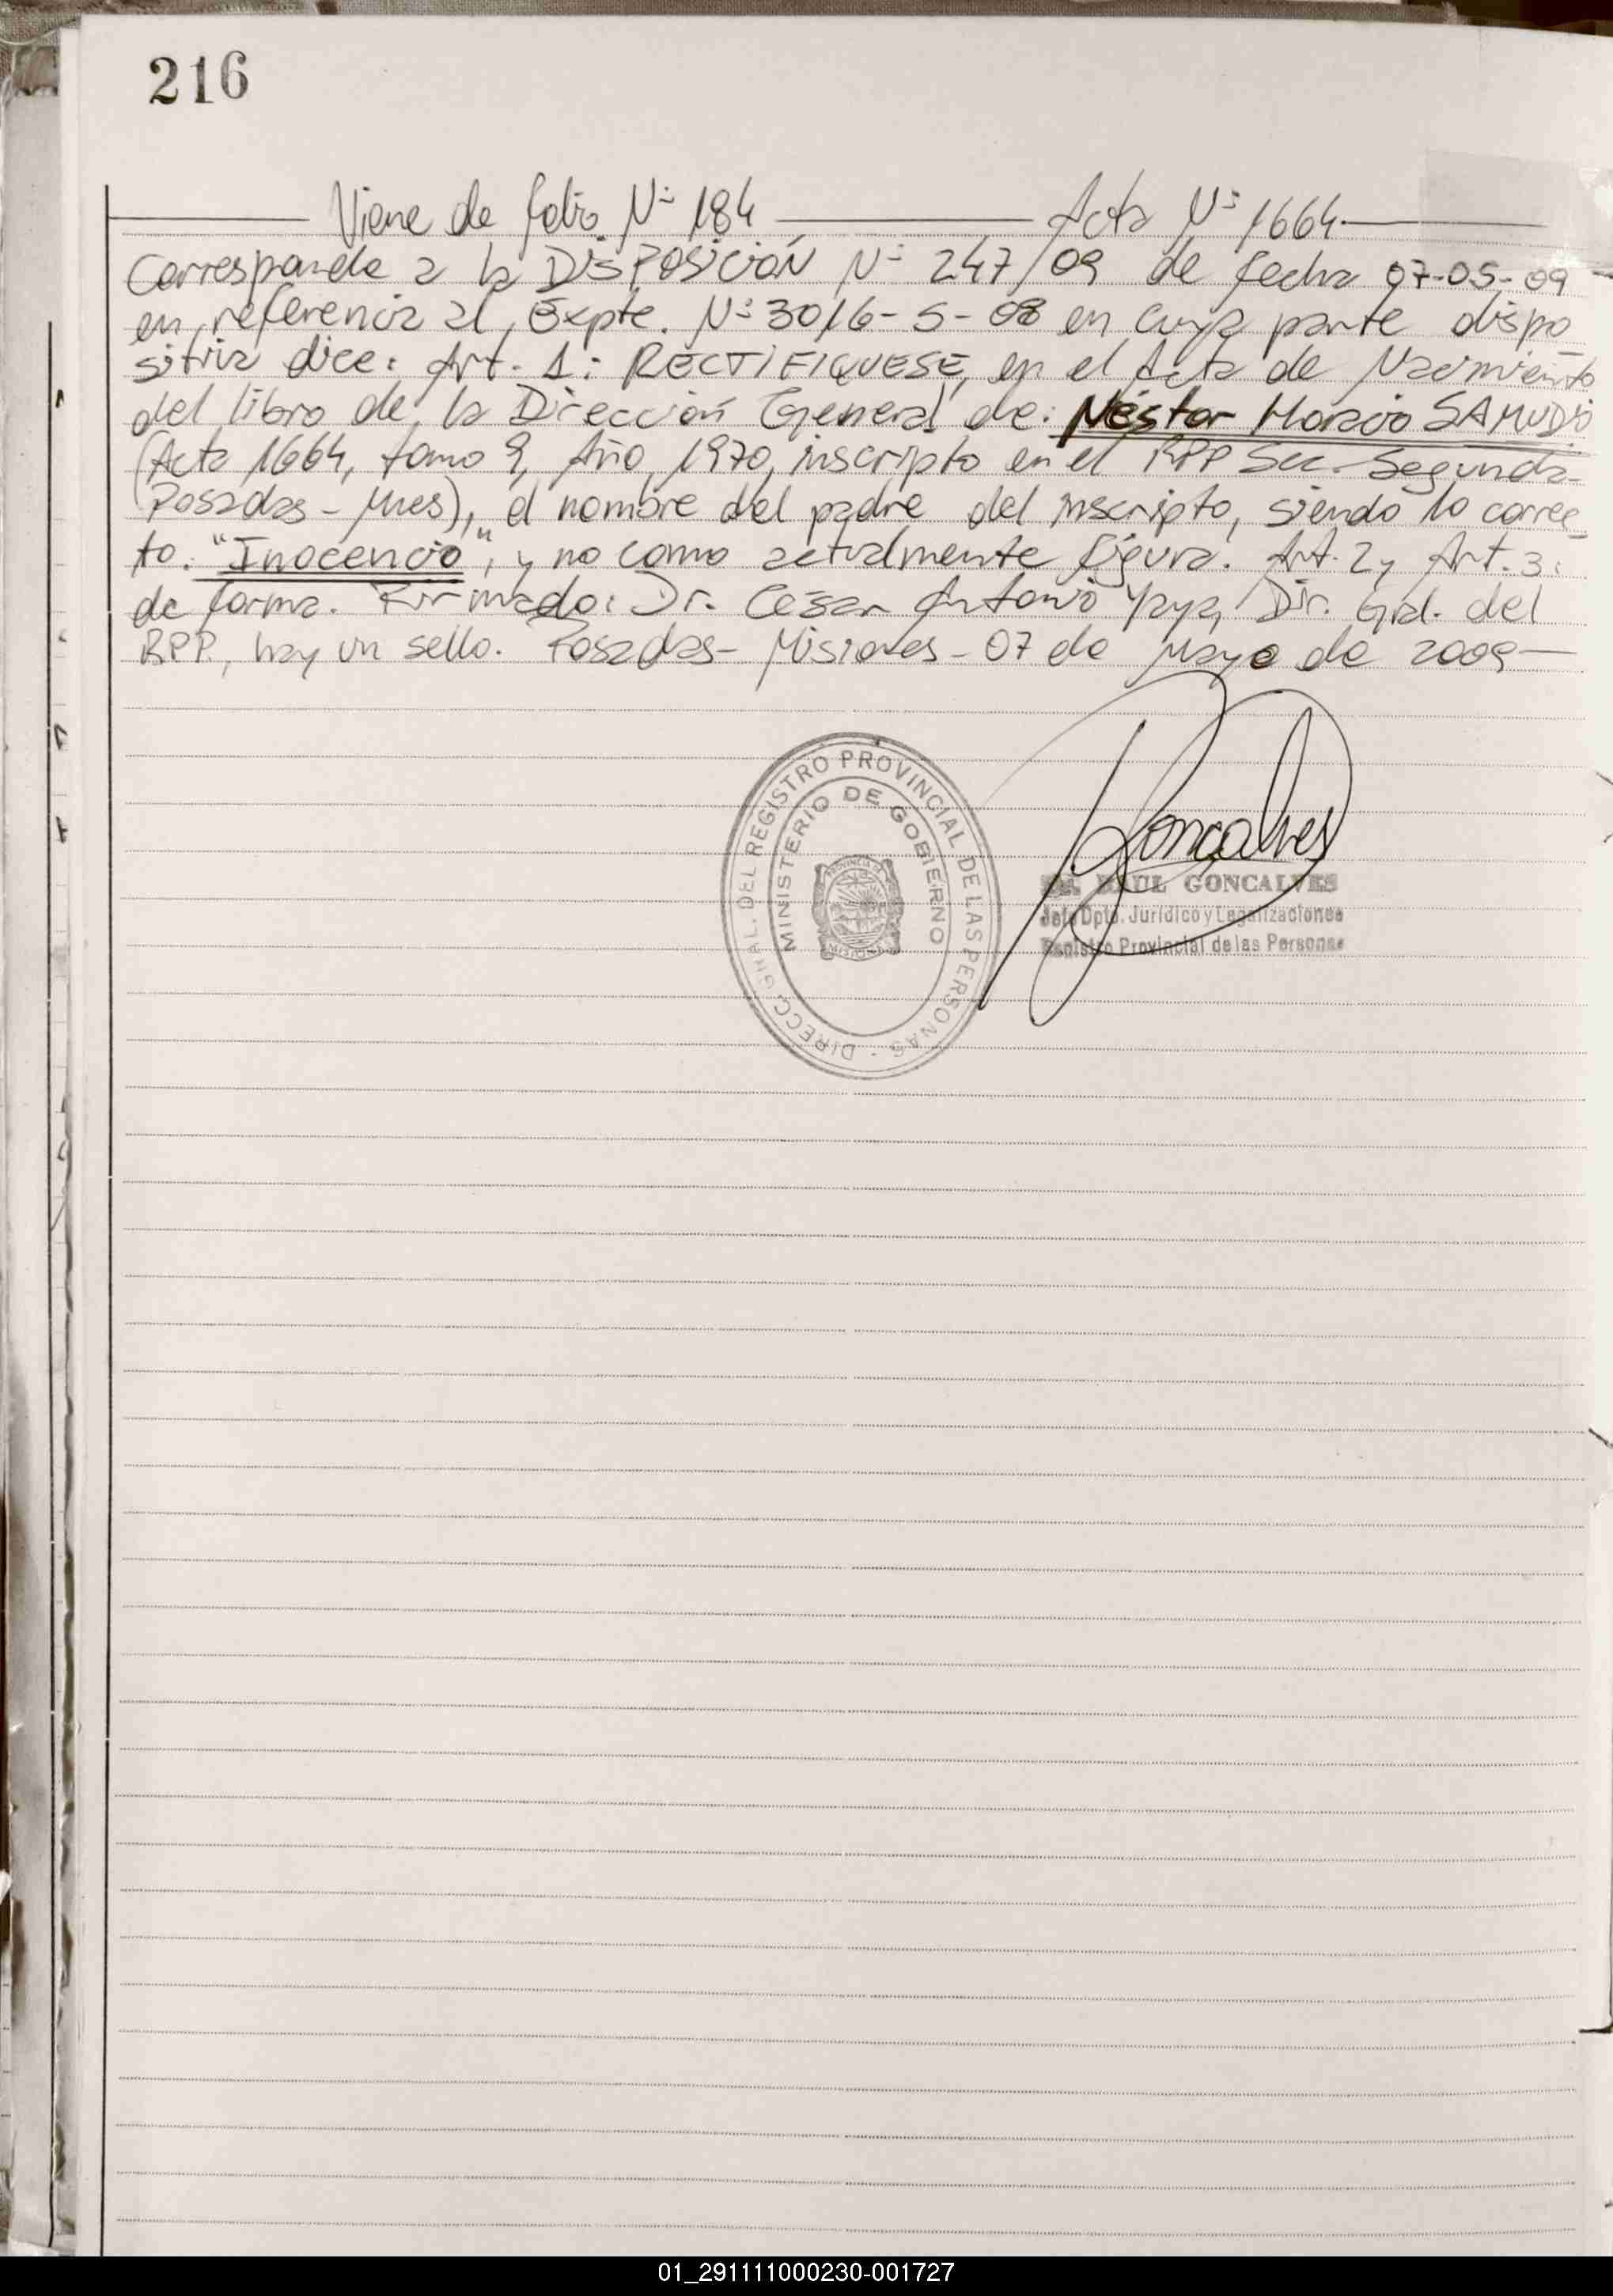 216
Viene de folio Nº 184 Acta Nº 1664
Corresponde a la DISPOSICIÓN Nº 247/09 de fecha 07-05-09
en referencia al Expte. Nº 3016-S-08 en cuya parte dispo
sitiva dice: Art. 1: RECTIFIQUESE, en el Acta de Nacimiento
del libro de la Dirección General de: Néstor Horacio SAMUDIO
(Acta 1664, tomo 9, Año 1970, inscripto en el RPP Sec. Segunda-
Posadas - Mnes), el nombre del padre del inscripto, siendo lo correc
to: "Inocencio", y no como actualmente figura. Art. 2 y Art. 3:
de forma. Firmado: Dr. César Antonio Yaya, Dir. Gral. del
RPP, hay un sello. Posadas - Misiones - 07 de Mayo de 2009
DIRECC. GRAL. DEL REGISTRO PROVINCIAL DE LAS PERSONAS
MINISTERIO DE GOBIERNO
Goncalves
RAUL GONCALVES
Jefe Dpto. Jurídico y Legalizaciones
Registro Provincial de las Personas
01_291111000230-001727